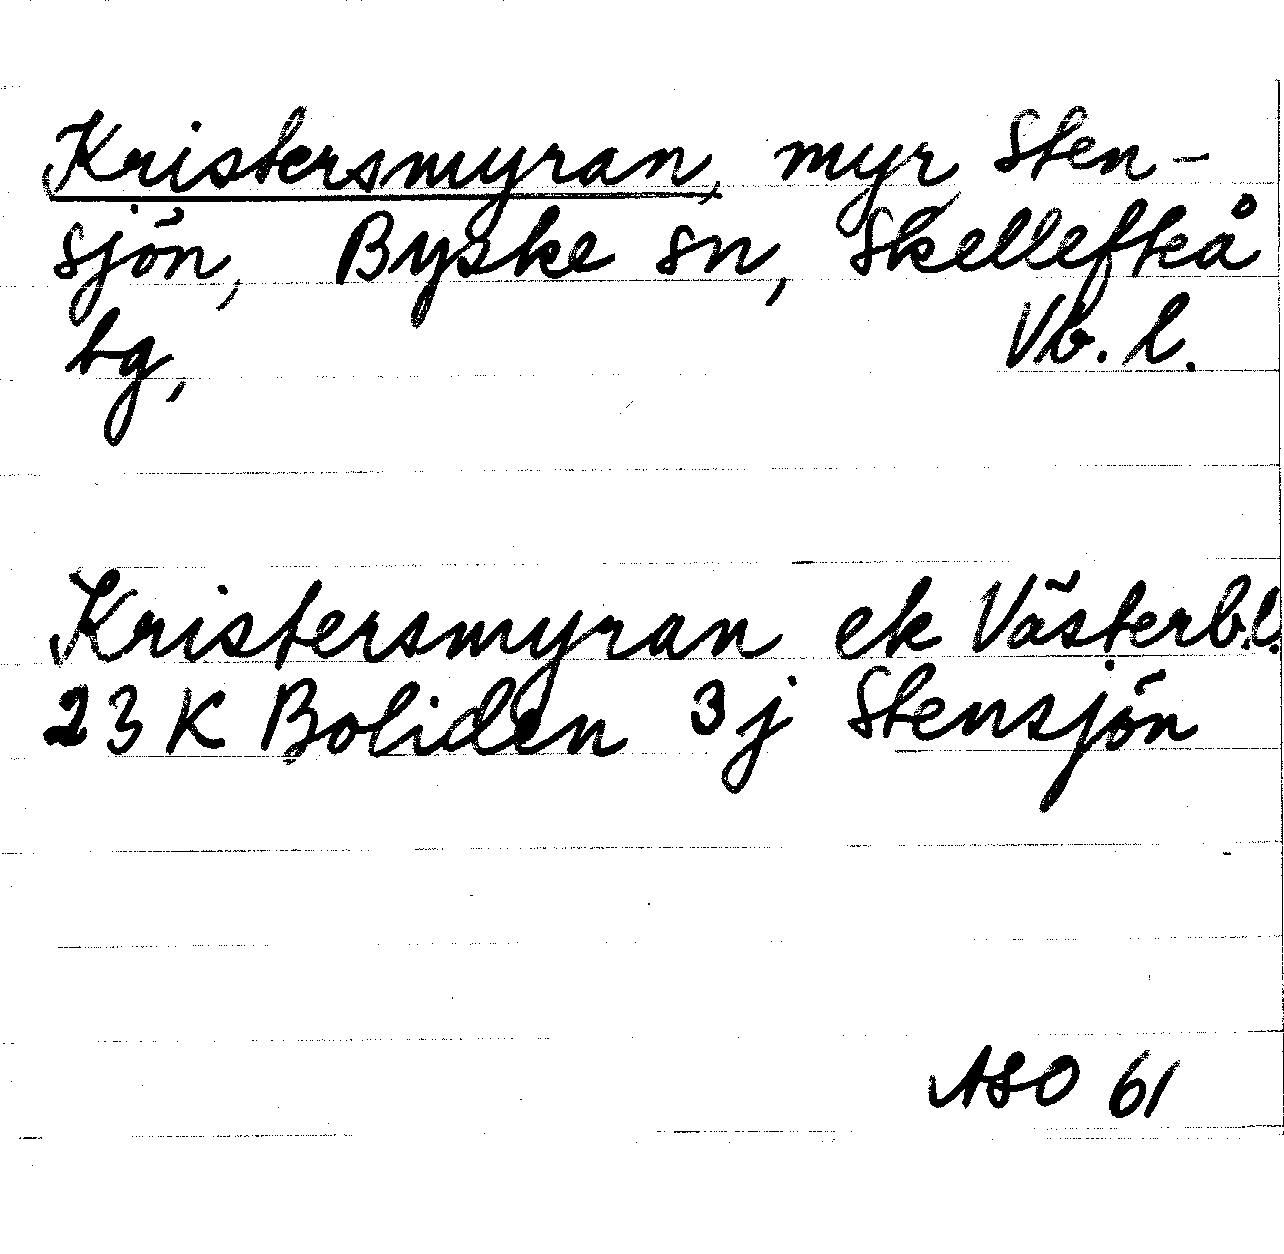 Kristersmyran, myr Sten-
sjön, Byske sn, Skellefteå
tg, Vb. l.
Kristersmyran ek Västerb.l.
23 K Boliden 3j Stensjön
ASO 61